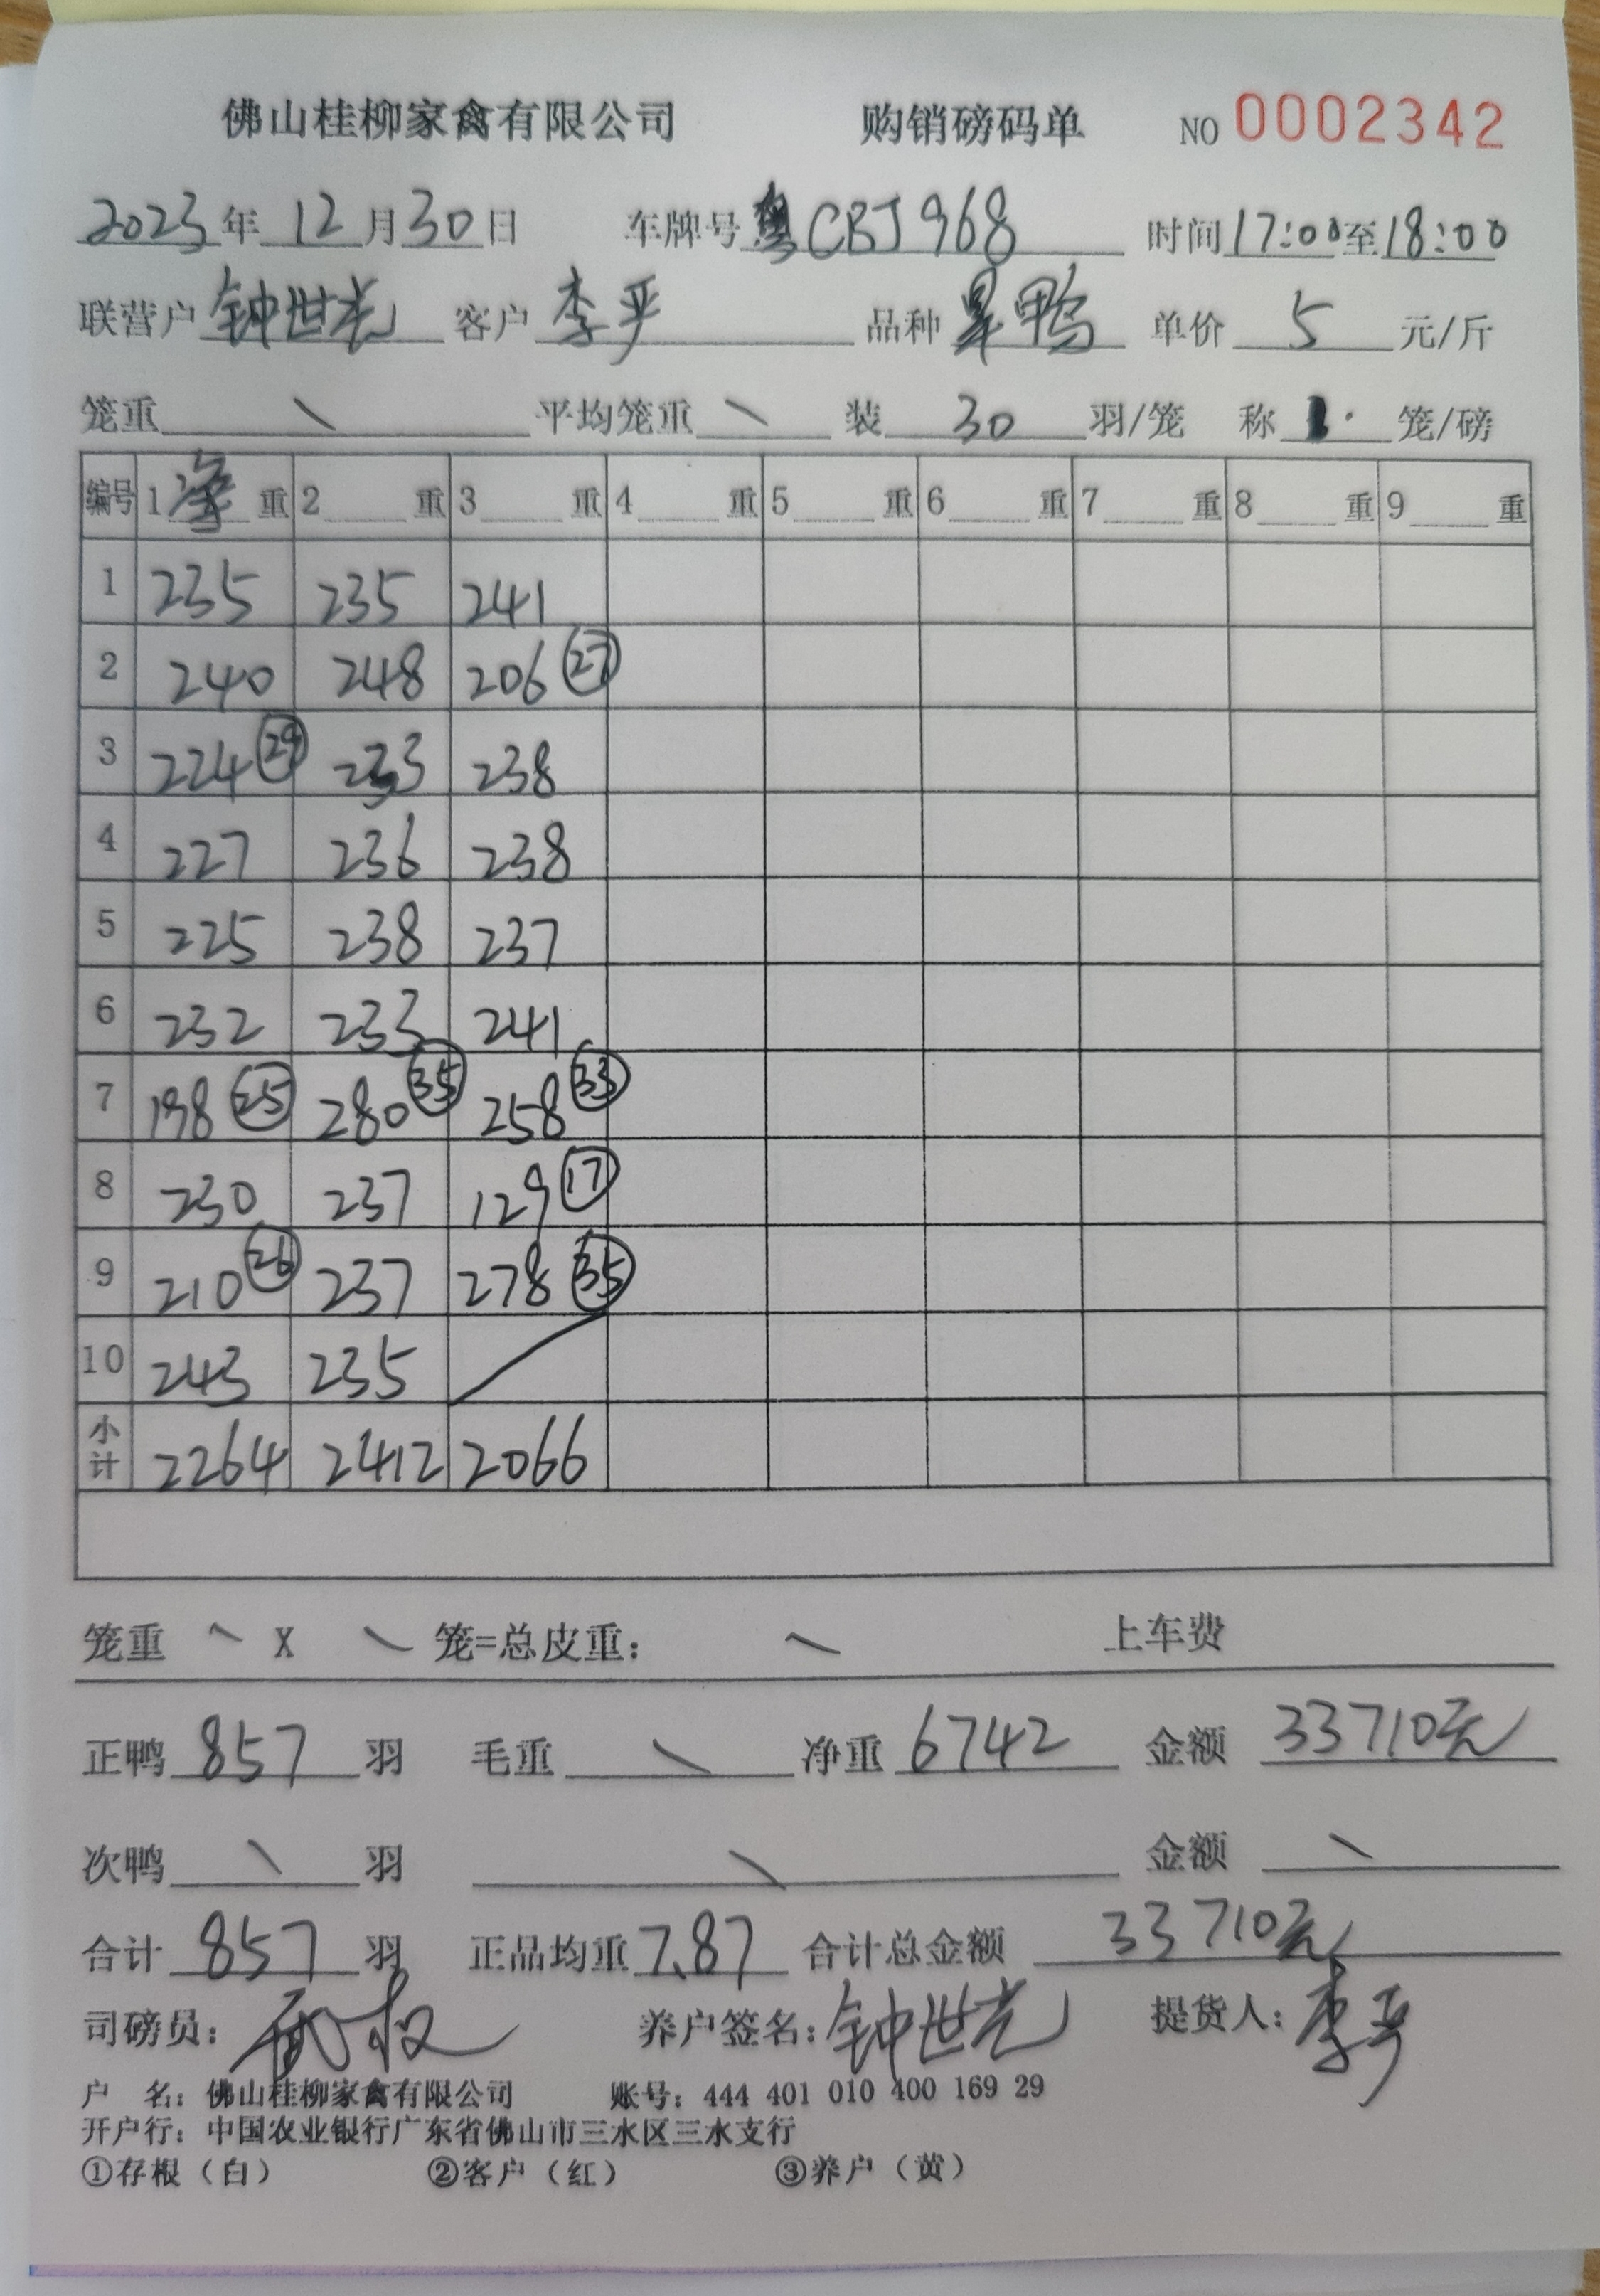 佛山桂柳家禽有限公司 购销磅码单 NO 0002342
2023年 12 月 30 日 车牌号 粤CBJ968 时间 17:00 至 18:00
联营户 钟世光 客户 李平 品种 鸭 单价 5 元/斤
笼重 \ 平均笼重 \ 装 30 羽/笼 称 1 笼/磅
编号 1 重 2 重 3 重 4 重 5 重 6 重 7 重 8 重 9 重
1 235 235 241
2 240 248 206 27
3 224 29 233 238
4 227 236 238
5 225 238 237
6 232 233 241
7 198 25 280 35 258 33
8 230 237 129 17
9 210 26 237 278 35
10 243 235 /
小计 2264 2412 2066
笼重 \ X \ 笼=总皮重: \ 上车费
正鸭 857 羽 毛重 \ 净重 6742 金额 33710元
次鸭 \ 羽 \ 金额 \
合计 857 羽 正品均重 7.87 合计总金额 33710元
司磅员: 养户签名: 钟世光 提货人: 李平
户 名: 佛山桂柳家禽有限公司 账号: 444 401 010 400 169 29
开户行: 中国农业银行广东省佛山市三水区三水支行
①存根（白） ②客户（红） ③养户（黄）